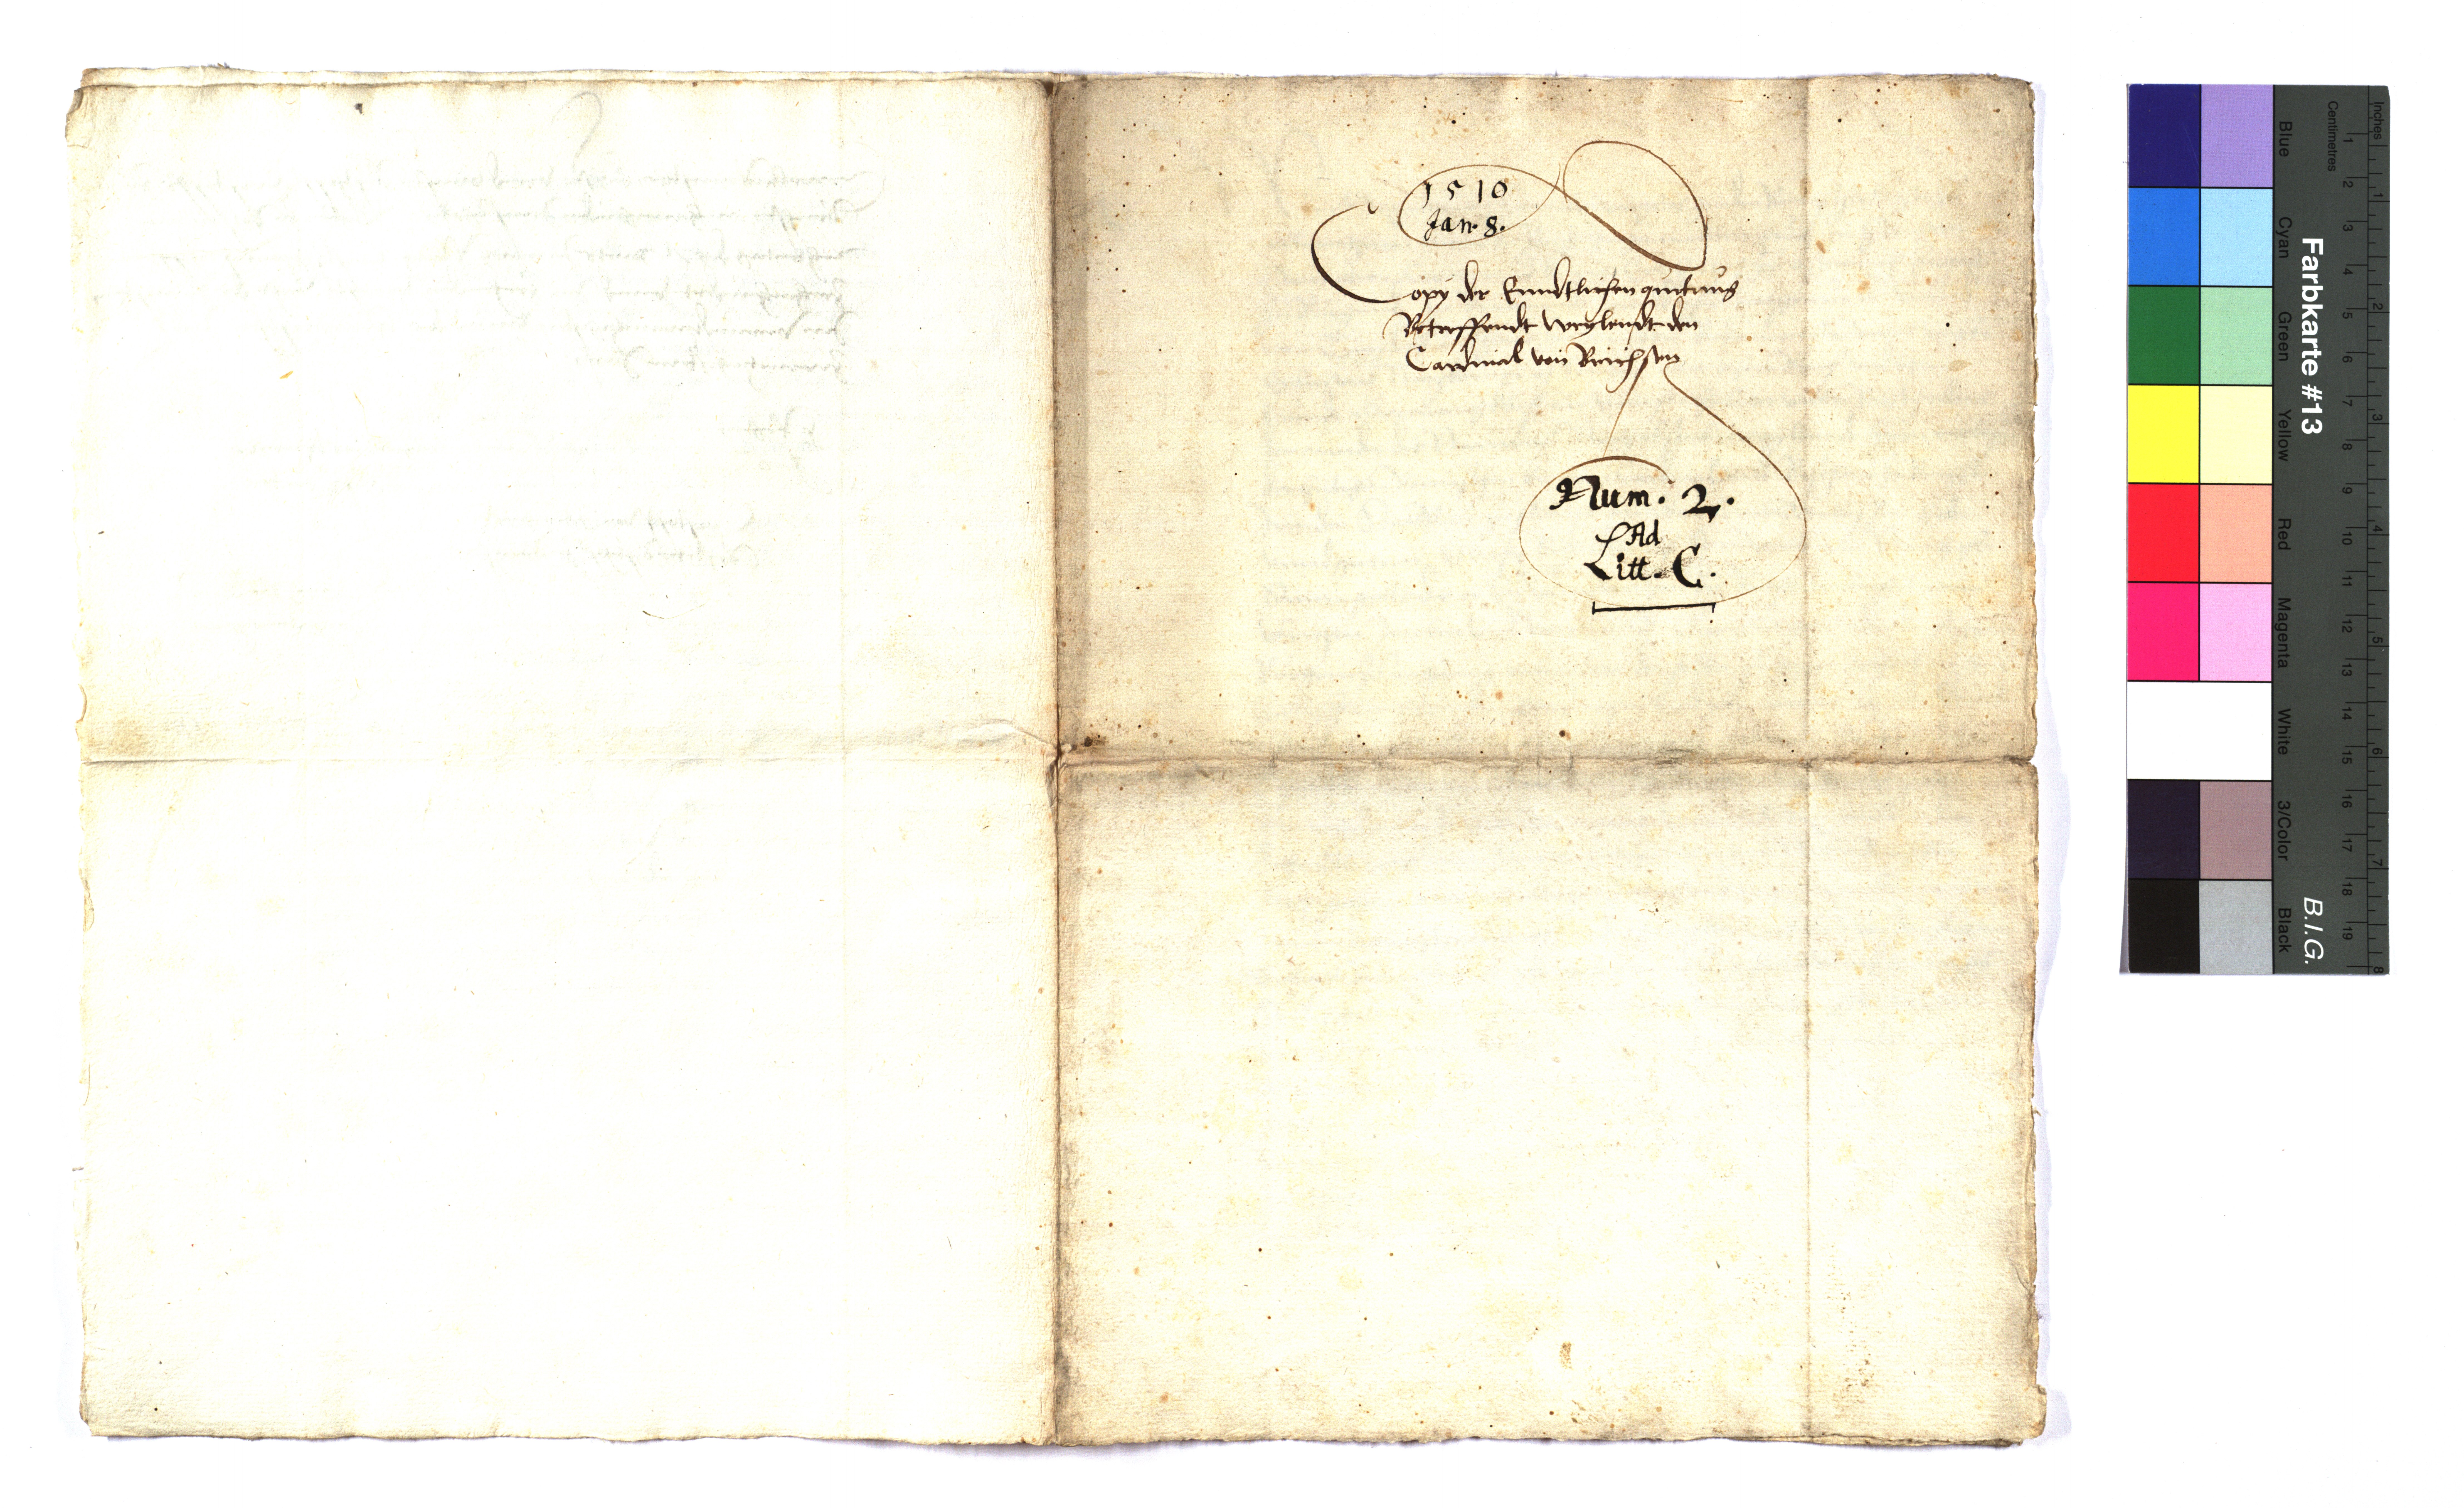 1510
Jan. 8.
Copy der Enndtlichen quitung
Betreffendt weylendt den
Cardinal von Brichsen
Num. 2.
Ad
Litt. C.
Farbkarte #13
B.I.G.
Blue
Cyan
Green
Yellow
Red
Magenta
White
3/Color
Black
Centimetres
Inches
1 2 3 4 5 6 7 8 9 10 11 12 13 14 15 16 17 18 19
1 2 3 4 5 6 7 8